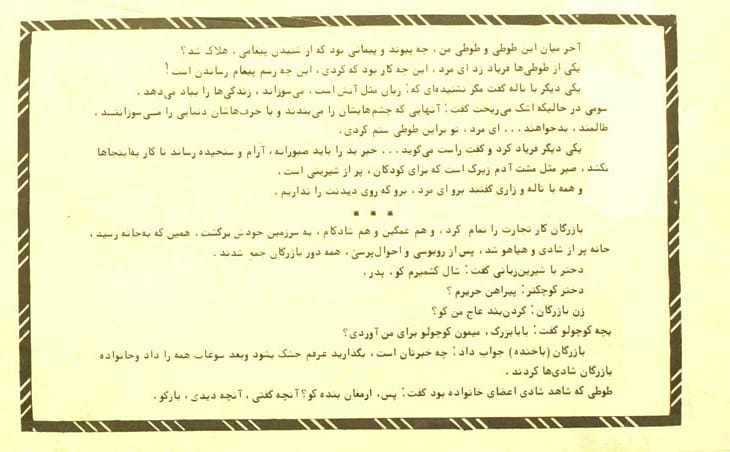 آخر میان این طوطی و طوطی من، چه پیوند و پیمانی بود که از شنیدن پیغامی، هلاک شد؟
یکی از طوطی‌ها فریاد زد ای مرد، این چه کار بود که کردی، این چه رسم پیغام رساندن است!
یکی دیگر با ناله گفت مگر نشنیده‌ای که: زبان مثل آتش است، می‌سوزاند، زندگی‌ها را بباد می‌دهد.
سومی در حالیکه اشک می‌ریخت گفت: آنهایی که چشم‌هایشان را می‌بندند و با حرف‌هاشان دنیایی را می‌سوزانند،
ظالمند، بدخواهند... ای مرد، تو براین طوطی ستم کردی.
یکی دیگر فریاد کرد و گفت راست می‌گوید... خبر بد را باید صبورانه، آرام و سنجیده رساند تا کار به‌اینجاها
نکشد، صبر مثل مشت آدم زیرک است که برای کودکان، پر از شیرینی است.
و همه با ناله و زاری گفتند برو ای مرد، برو که روی دیدنت را نداریم.
* * *
بازرگان کار تجارت را تمام کرد، و هم غمگین و هم شادکام، به سرزمین خودش برگشت، همین که به‌خانه رسید،
خانه پر از شادی و هیاهو شد، پس از روبوسی و احوال‌پرسی، همه دور بازرگان جمع شدند.
دختر با شیرین‌زبانی گفت: شال کشمیرم کو، پدر.
دختر کوچکتر: پیراهن حریرم؟
زن بازرگان: گردن‌بند عاج من کو؟
بچه کوچولو گفت: بابابزرگ، میمون کوچولو برای من آوردی؟
بازرگان (باخنده) جواب داد: چه خبرتان است، بگذارید عرقم خشک بشود وبعد سوغات همه را داد وخانواده
بازرگان شادی‌ها کردند.
طوطی که شاهد شادی اعضای خانواده بود گفت: پس، ارمغان بنده کو؟ آنچه گفتی، آنچه دیدی، بازگو.